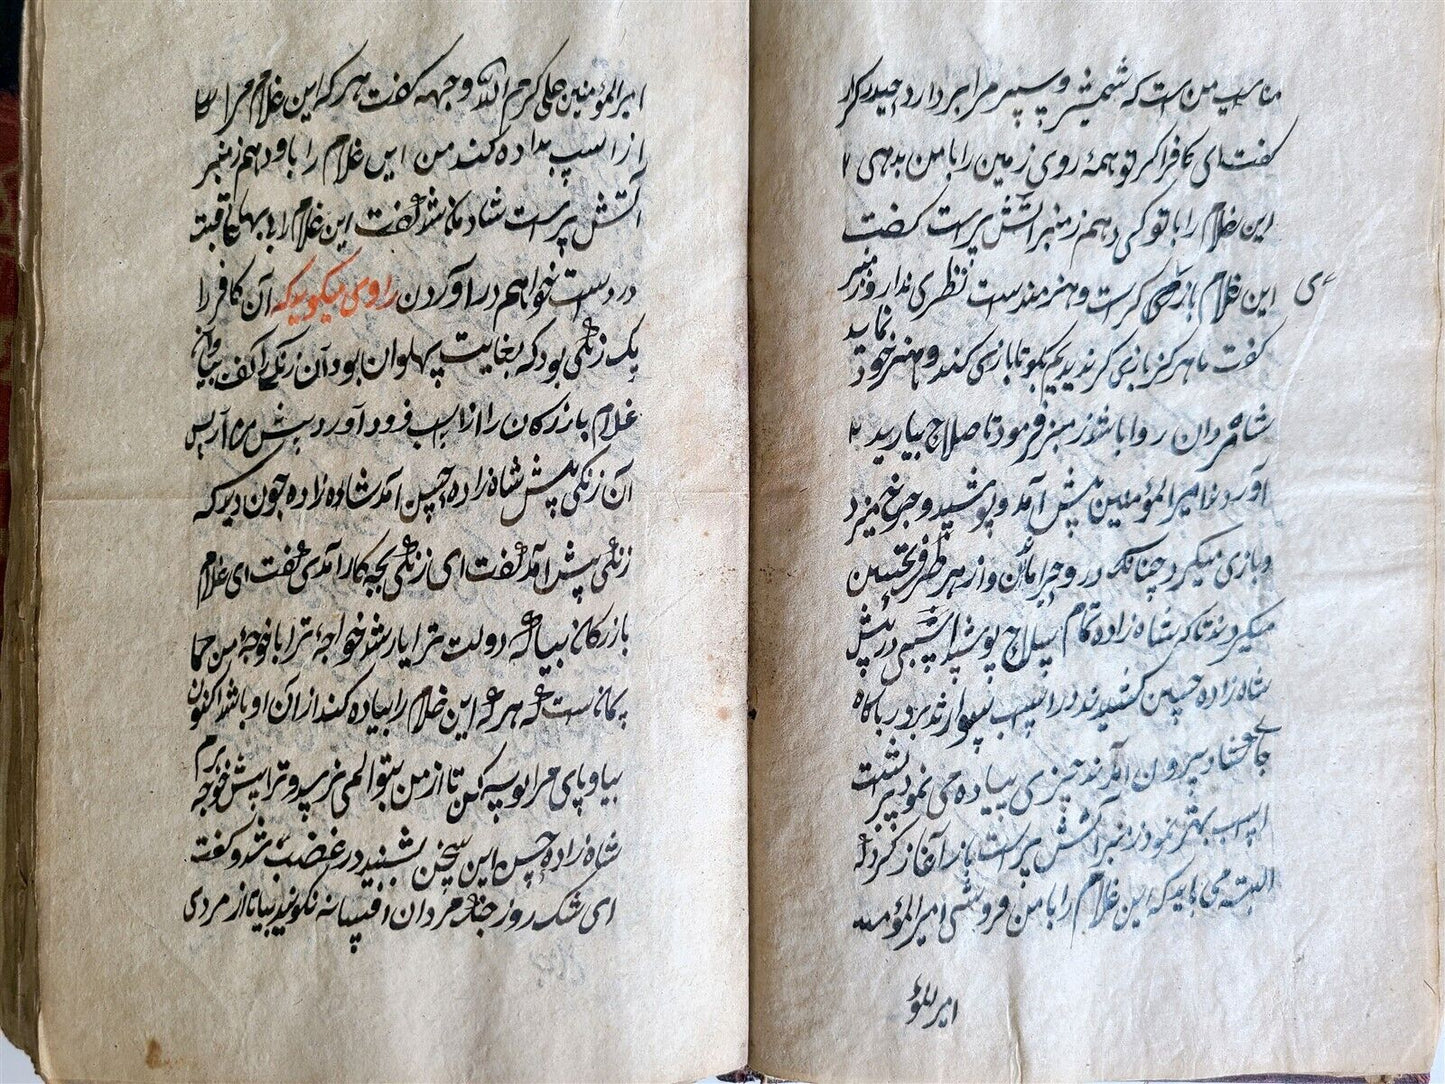 مناسب من است که شمشیر و سپر مرا بردارد حیدر کرار
گفت ای کافر اگر تو همهٔ روی زمین را با من بدهی
این غلام را با تو کی دهم زمنبر آتش پرست گفت
این غلام بازی کرست و هنرمند است نظری ندارد زمنبر
ی
گفت ما هرگز بازی کر ندیدیم بگو تا بازی کند و هنر خود نماید
شاه مردان روا باشد زمنبر فرمود تا صلاح بیارید
آوردند امیرالمؤمنین پیش آمد و پوشید و چرخ میزد
و بازی میکرد چنانکه در و حیران مانند و از هر طرف تحسین
میکردند تا که شاه زاده تمام سلاح پوشید اسپی در پیش
شاه زاده حسین کشیدند در اسپ سوار شد بر در بارگاه
بیرون آمدند چیزی پیاده می نمود بر پشت
اسپ بهتر نمود زمنبر آتش پرست باز آغاز کرد که
البته می باید که این غلام را با من فروشی امیرالمؤمنین
امیرالمؤ
امیرالمؤمنین علی کرم الله وجهه گفت هر که این غلام مرا
از اسپ پیاده کند من این غلام را باو دهم زمنبر
آتش پرست شادمان شد گفت این غلام را
در دست خواهم در آوردن راوی میکوید که آن کافر را
یک زنگی بود که بغایت پهلوان بود آن زنگی را گفت بیا و این
غلام بازرکان را از اسپ فرود آورد پیش من آر پس
آن زنگی پیش شاه زاده حسین آمد شاه زاده چون دید که
زنگی پیش آمد گفت ای زنگی بچه کار آمدی گفت ای غلام
بازرکان بیا که دولت ترا یار شد خواجهٔ ترا با خوجهٔ من
پیمان است که هر که این غلام را پیاده کند از آن او باشد اکنون
بیا و پای مرا بوسه کن تا از من بتو المی نرسد و ترا پیش خوجه برم
شاه زاده حسین این سخن بشنید در غضب شد و گفت
ای سک روز جنک مردان افسانه نکویند بیا تا از مردی